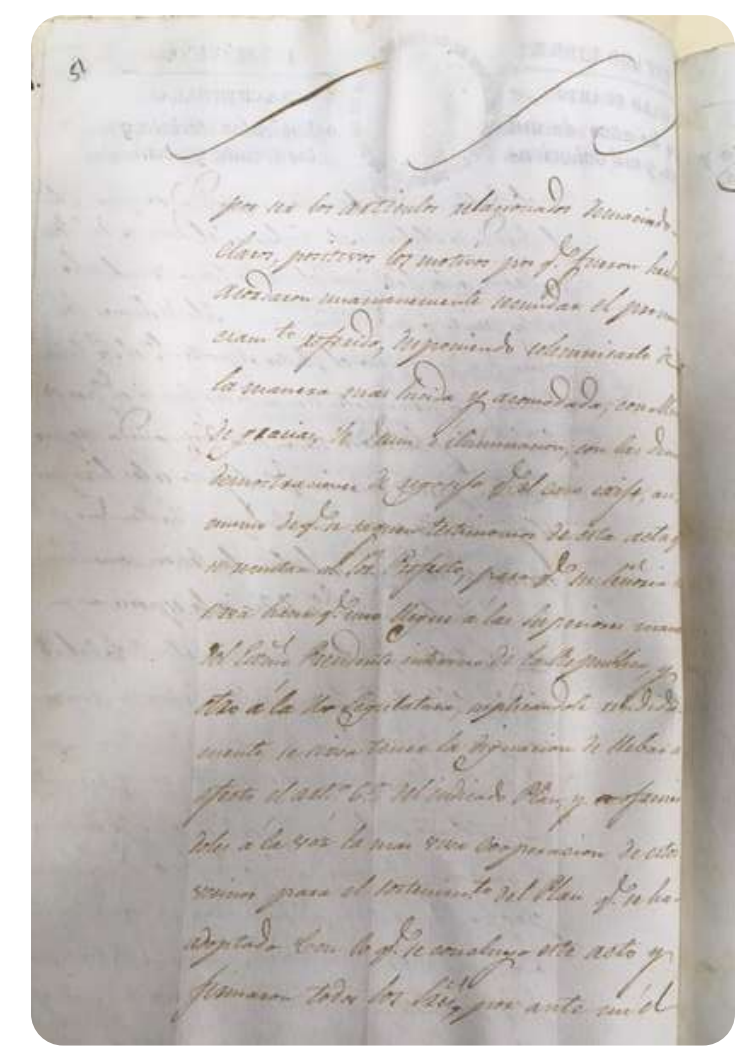 51
por ser los articulos relacionados demaciado
claros, positivos los motivos por q.e fueron hechos
acordaron unanimemente secundar el pronun
ciam.to referido, disponiendo solemnisarlo de
la manera mas lucida y acomodada, con Misa
de gracias, Te Deum, é iluminacion, con las demas
demostraciones de regocijo q.e el caso exije, asi
mismo de q.e se saquen testimonios de esta acta, q
se remitan al Sor. Prefecto, para q.e su Señoria
sirva hacer q.e uno llegue a las Superiores manos
del Exmo. Presidente interino de la Republica, y
otro á la H. Legislatura, suplicandole rendida
mente se sirva tener la dignacion de llebar a
efecto el art.o 6.o del indicado Plan, y ofrecien
doles á la vez la mas viva cooperacion de estos
vecinos para el sostenimiento del Plan q.e se ha
adoptado. Con lo q.e se concluyo este acto y
firmaron todos los SSes. por ante mi el